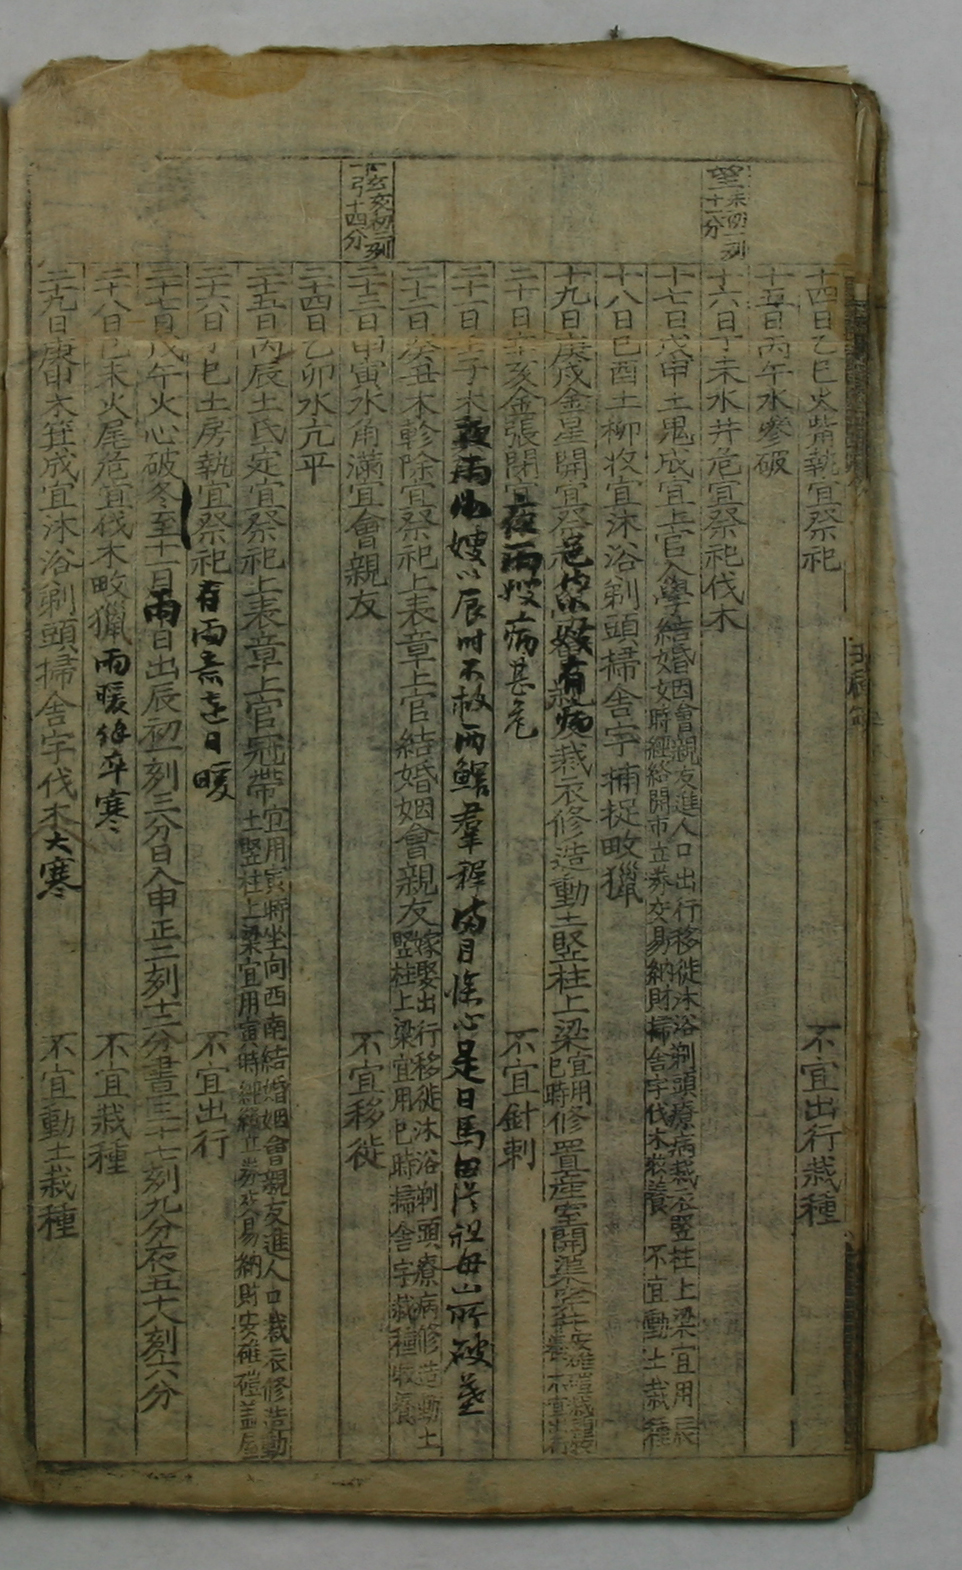 望 未初一刻十一分
十四日乙巳火觜執宜祭祀 不宜出行栽種
十五日丙午水參破
十六日丁未水井危宜祭祀伐木
十七日戊申土鬼成宜上官入學結婚姻會親友進人口出行移徙沐浴剃頭療病裁衣竪柱上梁宜用辰時經絡開市立券交易納財掃舍宇伐木牧養 不宜動土栽種
十八日己酉土柳收宜沐浴剃頭掃舍宇捕捉畋獵
十九日庚戌金星開宜祭祀 有病 裁衣修造動土竪柱上梁宜用巳時修置產室開渠穿井安碓磑栽種牧養 不宜出行
二十日辛亥金張閉宜 夜雨嫂病甚危 不宜針刺
二十一日壬子木 夜雨 嫂以辰時不救兩鰥羣稺滿目慘心是日馬田洑祖母山所破墓
二十二日癸丑木軫除宜祭祀上表章上官結婚姻會親友嫁娶出行移徙沐浴剃頭療病修造動土竪柱上梁宜用巳時掃舍宇栽種牧養
下弦 亥初二刻十四分
二十三日甲寅水角滿宜會親友 不宜移徙
二十四日乙卯水亢平
二十五日丙辰土氐定宜祭祀上表章上官冠帶宜用寅時坐向西南結婚姻會親友進人口裁衣修造動土竪柱上梁宜用寅時經絡立券交易納財安碓磑盖屋
二十六日丁巳土房執宜祭祀 有雨 日暖 不宜出行
二十七日戊午火心破冬至十一月雨日出辰初一刻三分日入申正三刻十二分晝三十七刻九分夜五十八刻六分
二十八日己未火尾危宜伐木畋獵 雨暖 卒寒 不宜栽種
二十九日庚申木箕成宜沐浴剃頭掃舍宇伐木 大寒 不宜動土栽種